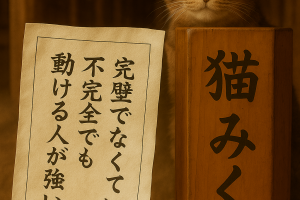 完璧でなくて
不完全でも
動ける人が強い
猫みく